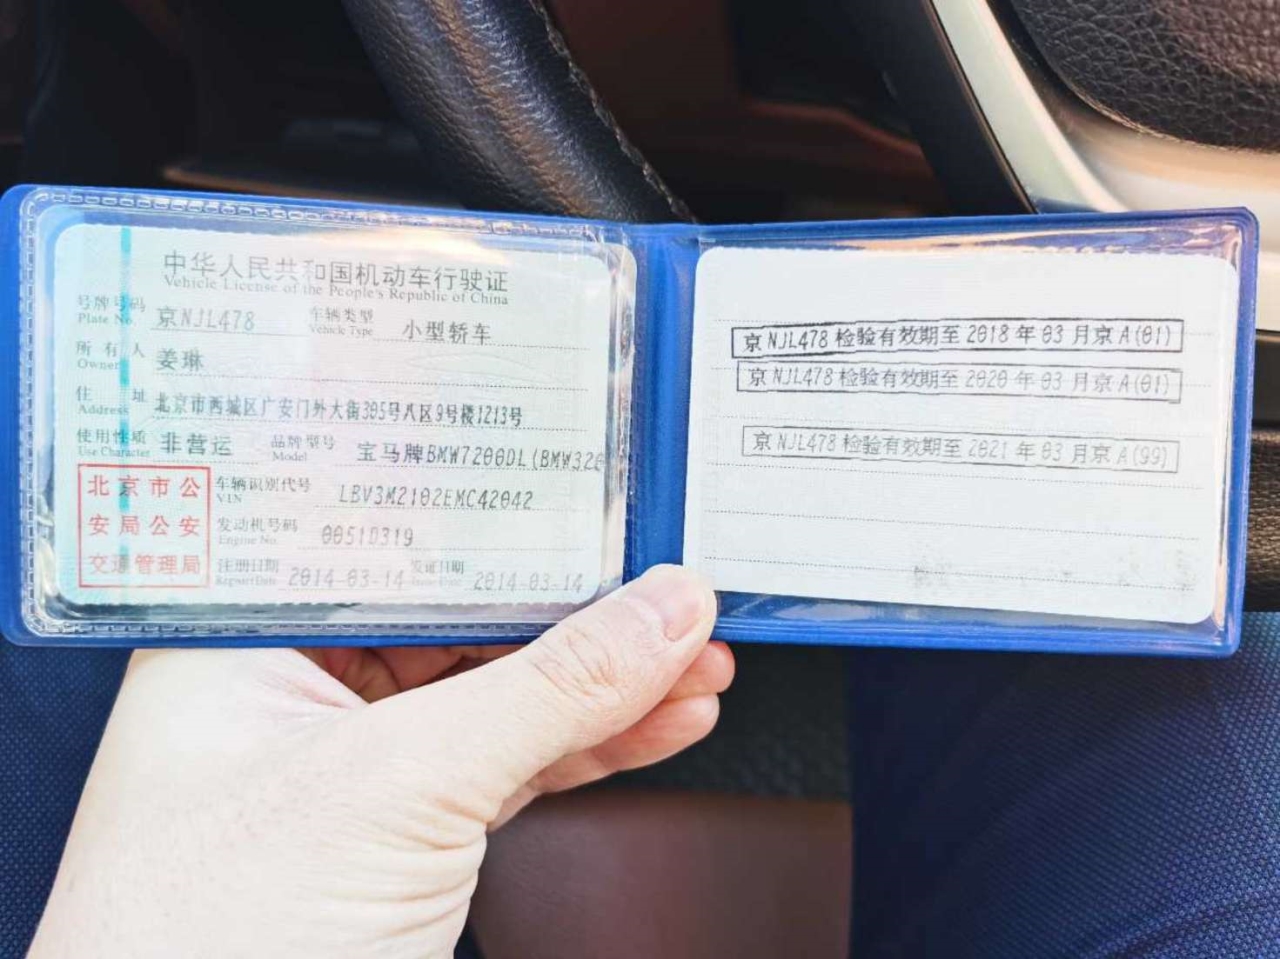 中华人民共和国机动车行驶证
Vehicle License of the People's Republic of China
号牌号码 京NJL478 车辆类型 小型轿车
Plate No. Vehicle Type
所有人 姜琳
Owner
住址 北京市西城区广安门外大街305号八区9号楼1213号
Address
使用性质 非营运 品牌型号 宝马牌BMW7200DL(BMW320
Use Character Model
北京市公安局公安交通管理局
车辆识别代号 LBV3M2102EMC42042
VIN
发动机号码 0051D319
Engine No.
注册日期 2014-03-14 发证日期 2014-03-14
Register Date Issue Date
京NJL478 检验有效期至 2018 年 03 月京 A(01)
京NJL478 检验有效期至 2020 年 03 月京 A(01)
京NJL478 检验有效期至 2021 年 03 月京 A(99)